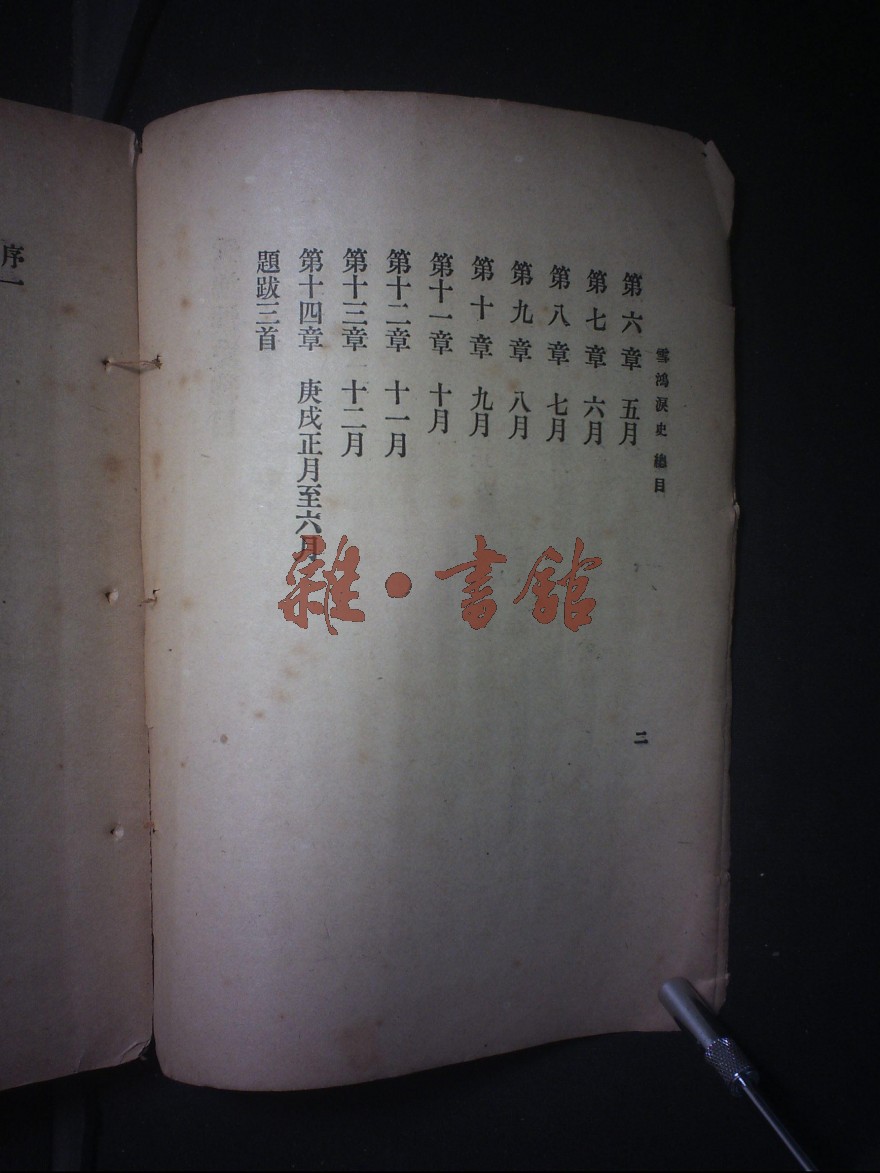 雪鴻淚史 總目
第六章 五月
第七章 六月
第八章 七月
第九章 八月
第十章 九月
第十一章 十月
第十二章 十一月
第十三章 十二月
第十四章 庚戌正月至六月
題跋三首
二
序一
雜·書館